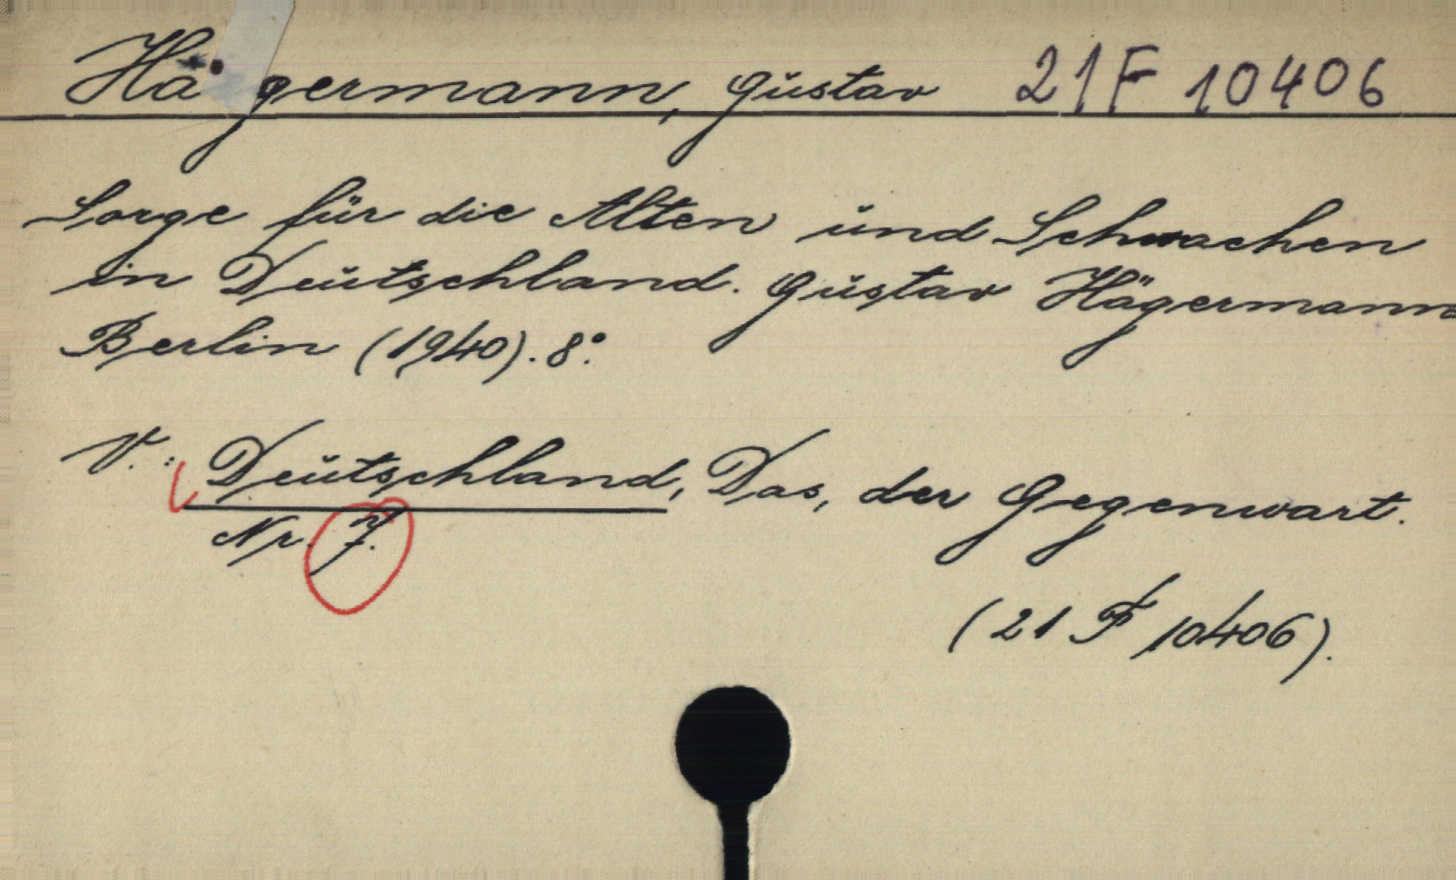 Hägermann, Gustav 21 F 10406
Sorge für die Alten und Schwachen
in Deutschland. Gustav Hägermann
Berlin (1940). 8°.
V.: Deutschland, Das, der Gegenwart.
Nr. 7.
(21 F 10406).